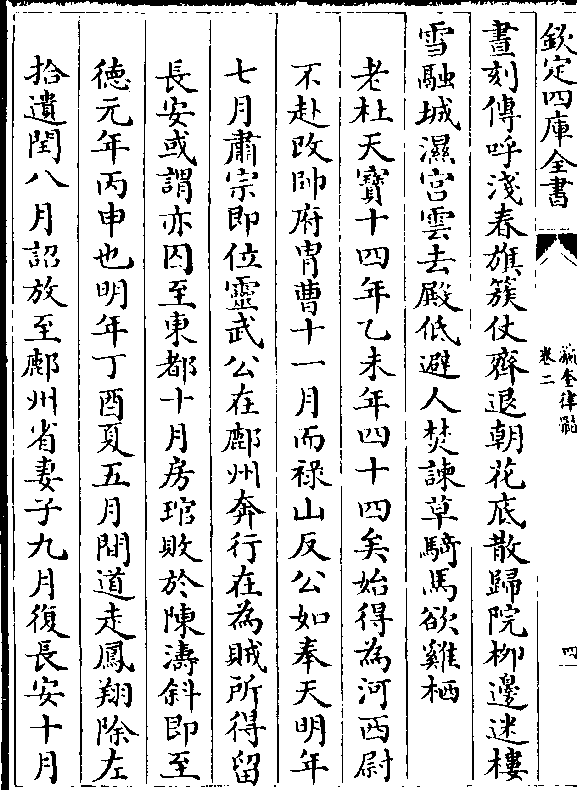 欽定四庫全書
瀛奎律髓
卷二
四
晝刻傳呼淺春旗簇仗齊退朝花底散歸院柳邊迷樓
雪融城濕宫雲去殿低避人焚諫草騎馬欲雞栖
老杜天寶十四年乙未年四十四矣始得為河西尉
不赴改帥府胄曹十一月而禄山反公如奉天明年
七月肅宗即位靈武公在鄜州奔行在為賊所得留
長安或謂亦囚至東都十月房琯敗於陳濤斜即至
徳元年丙申也明年丁酉夏五月間道走鳳翔除左
拾遺閏八月詔放至鄜州省妻子九月復長安十月